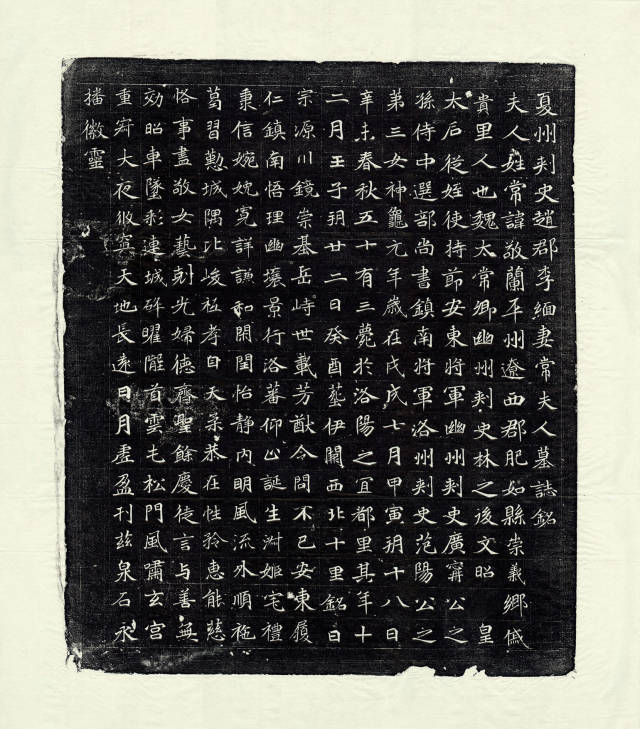 夏州刺史趙郡李緬妻常夫人墓誌銘
夫人姓常諱敬蘭平州遼西郡肥如縣崇義鄉戚
貴里人也魏太常卿幽州刺史林之後文昭 皇
太后從姪使持節安東將軍幽州刺史廣寧公之
孫侍中選部尚書鎮南將軍洛州刺史范陽公之
第三女神龜元年歲在戊戌七月甲寅朔十八日
辛未春秋五十有三薨於洛陽之宜都里其年十
二月壬子朔廿二日癸酉塟伊闕西北十里銘曰
宗源川鏡崇基岳峙世載芳猷令問不已安東履
仁鎮南悟理幽壤景行洛蕃仰止誕生淑姬宅禮
秉信婉娩寬詳謙和閑閏怡靜內明風流外順袘
葛習懃城隅比峻祗孝自天柔恭在性矜惠能慈
恪事盡敬女藝剋光婦德齊聖餘慶徒言与善無
効昭車墜彩連城碎曜隴首雲屯松門風嘯玄宮
重窈大夜攸寘天地長遠日月虛盈刊茲泉石永
播徽靈